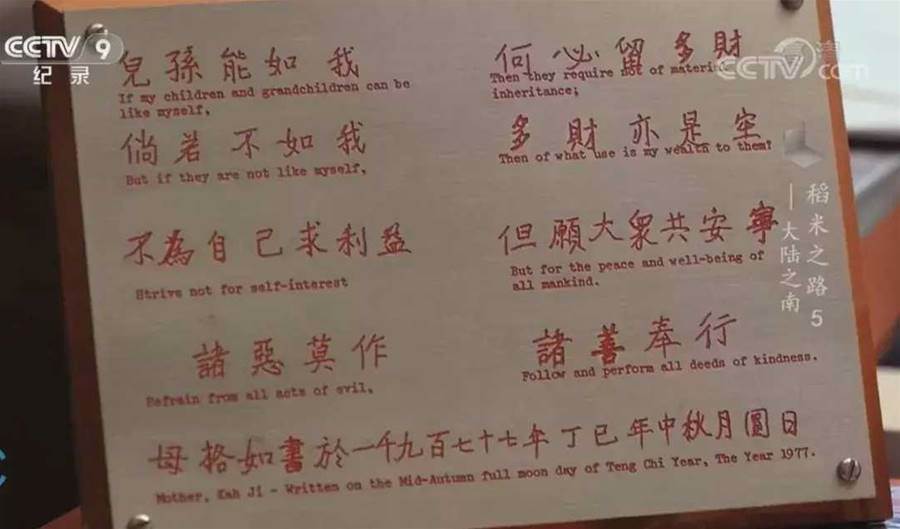 CCTV 9
纪录
CCTV.com
兒孫能如我
If my children and grandchildren can be
like myself,
何必留多財
Then they require not of material
inheritance;
倘若不如我
But if they are not like myself,
多財亦是空
Then of what use is my wealth to them?
不為自己求利益
Strive not for self-interest
但願大眾共安寧
But for the peace and well-being of
all mankind.
諸惡莫作
Refrain from all acts of evil,
諸善奉行
Follow and perform all deeds of kindness.
母格如書於一千九百七十七年丁巳年中秋月圓日
Mother, Kah Ji - Written on the Mid-Autumn full moon day of Teng Chi Year, The Year 1977.
稻米之路 5
—大陆之南